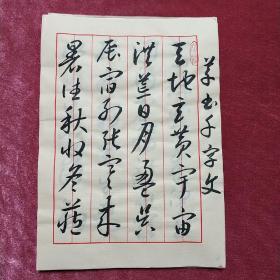 草书千字文
天地玄黄宇宙
洪荒日月盈昃
辰宿列张寒来
暑往秋收冬藏